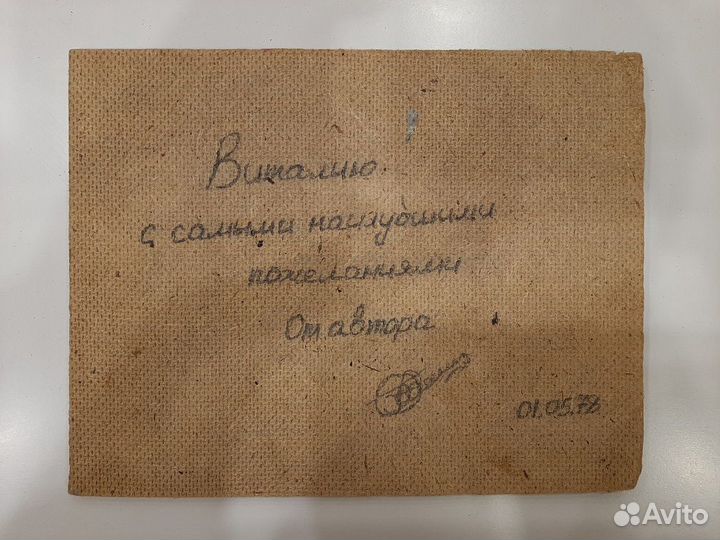 Виталию
с самыми наилучшими
пожеланиями
От автора
01.05.78
Avito